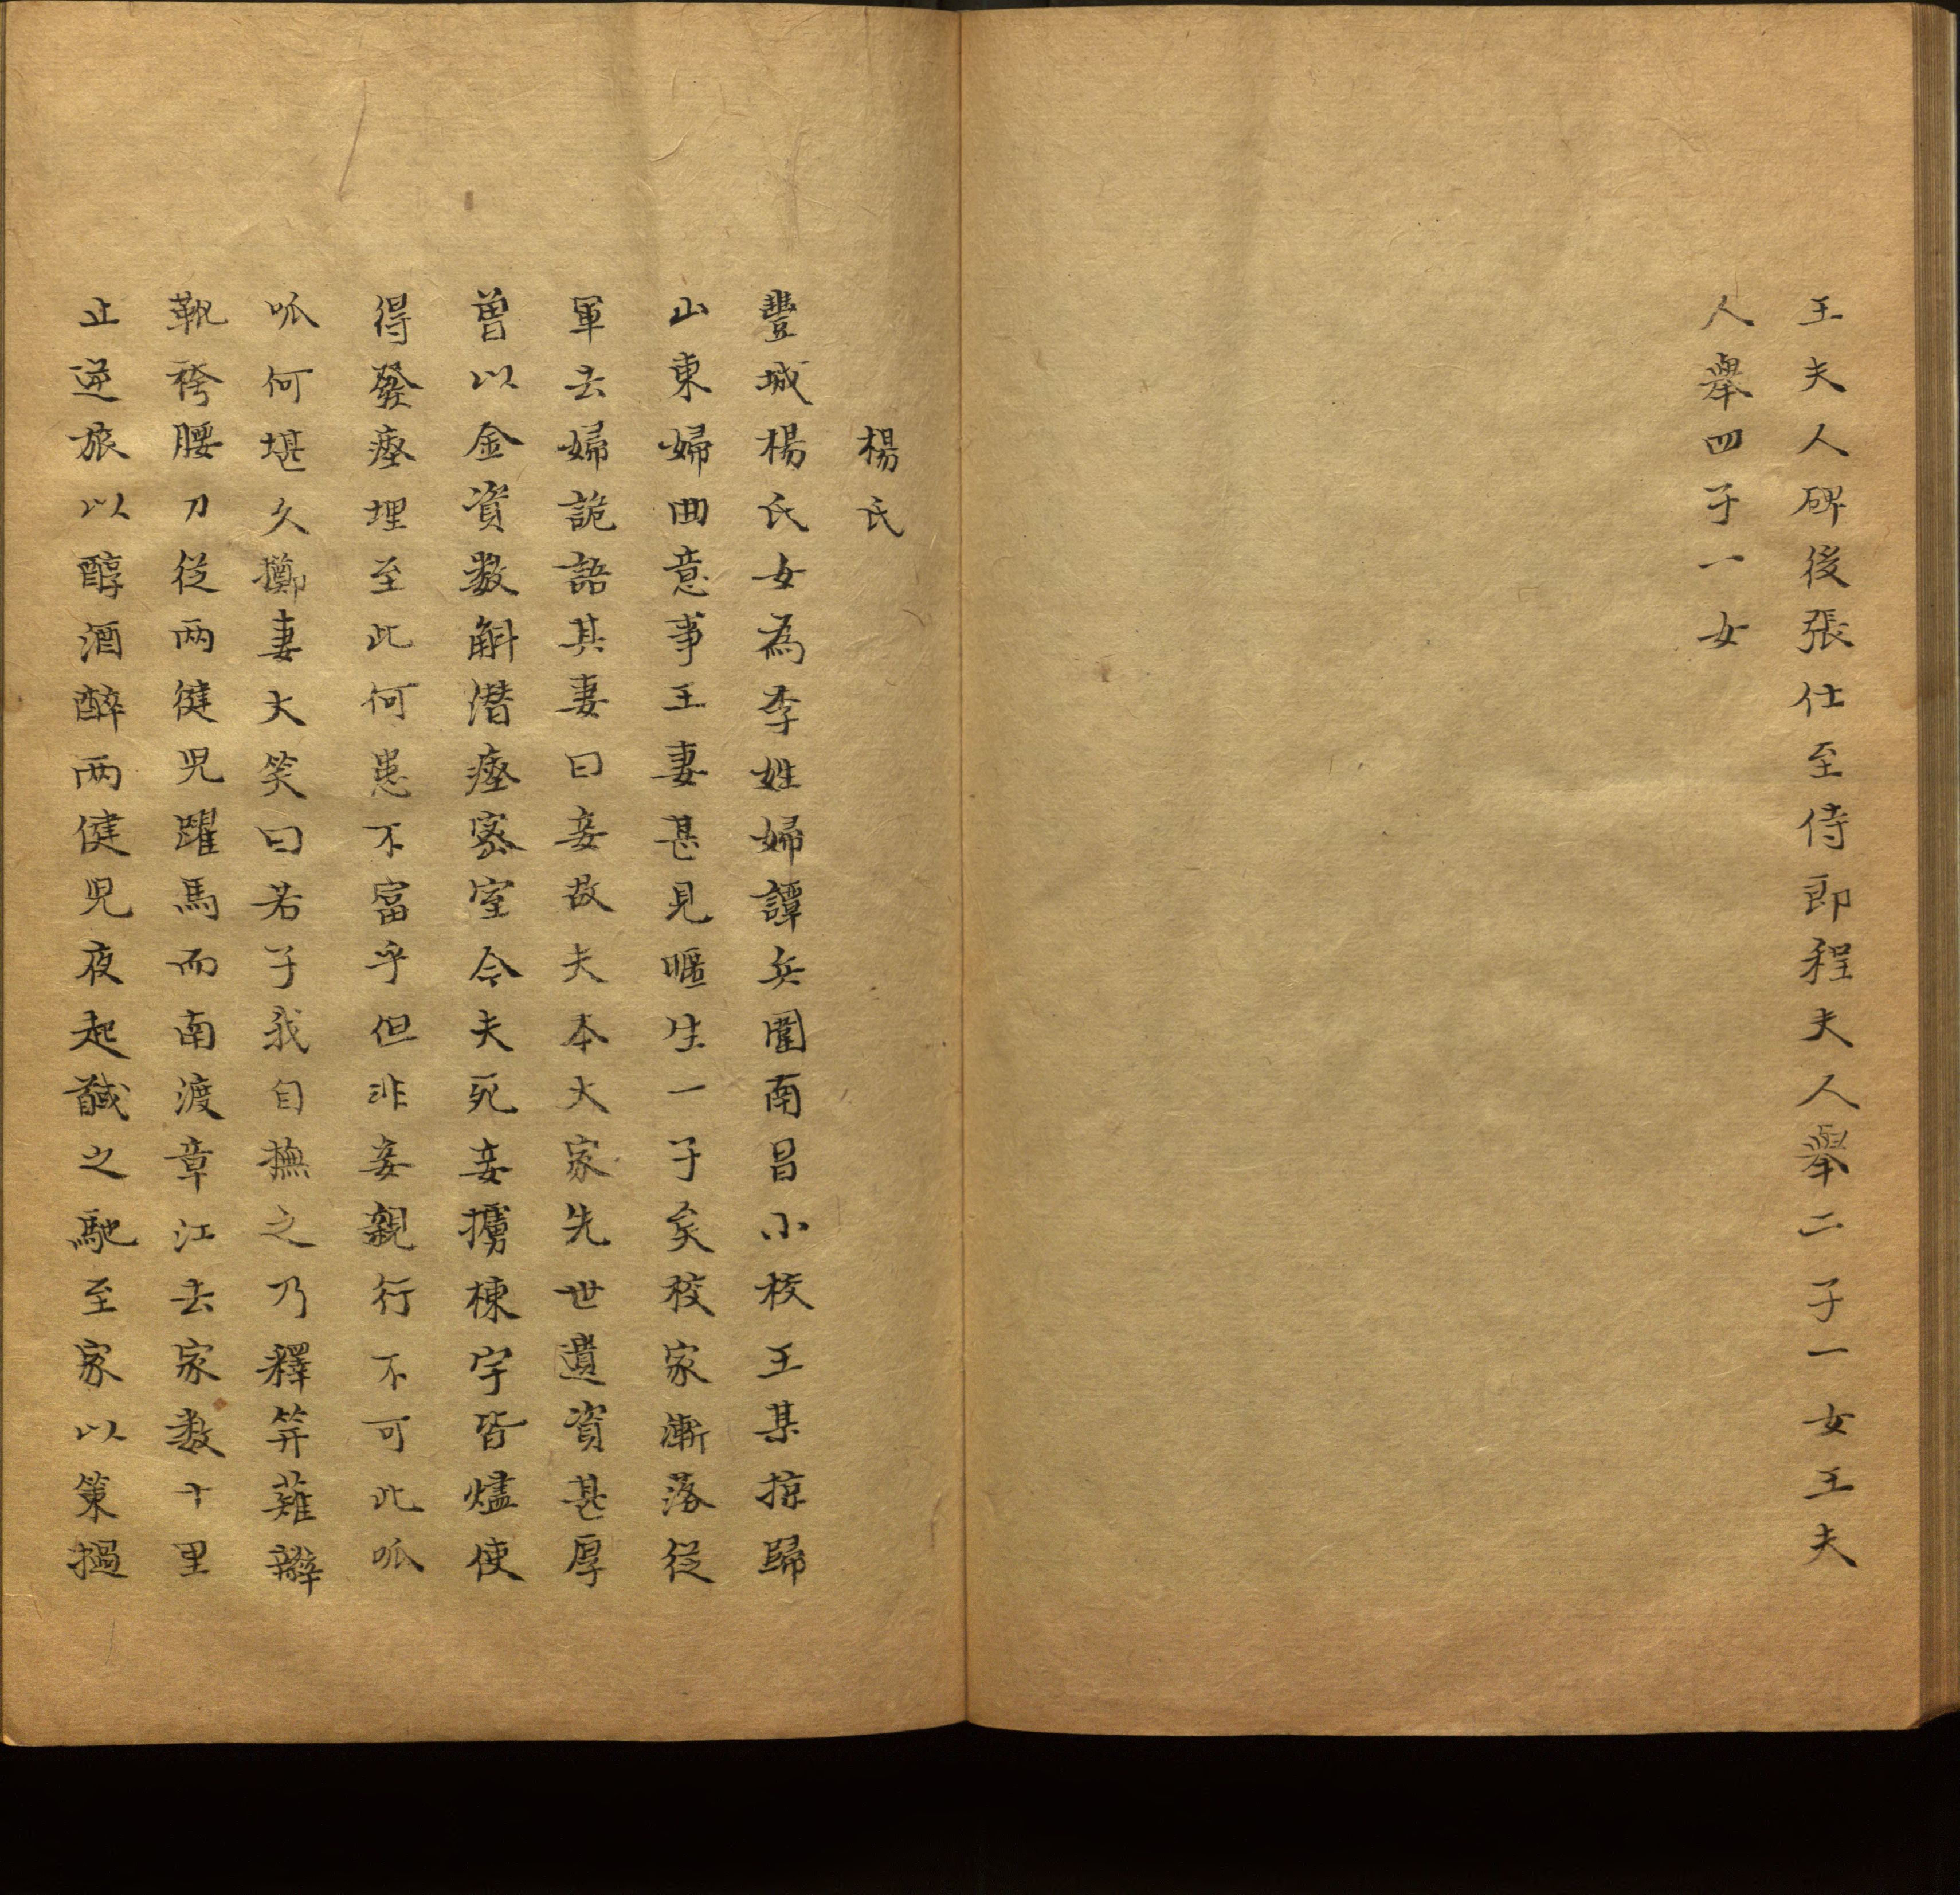 王夫人碑後張仕至侍郎程夫人舉二子一女王夫
人舉四子一女
楊氏
豐城楊氏女為李姓婦譚兵圍南昌小校王某掠歸
山東婦曲意事王妻甚見暱生一子矣校家漸落從
軍去婦詭語其妻曰妾故夫本大家先世遺資甚厚
曾以金資数斛潜瘞宻室今夫死妾擄棟宇皆燼使
得發瘞埋至此何患不富乎但非妾親行不可此呱
呱何堪久擲妻大笑曰若子我自撫之乃釋笄薙辮
靴袴腰刀從两健児躍馬而南渡章江去家数十里
止逆旅以醇酒醉两健児夜起馘之馳至家以策撾